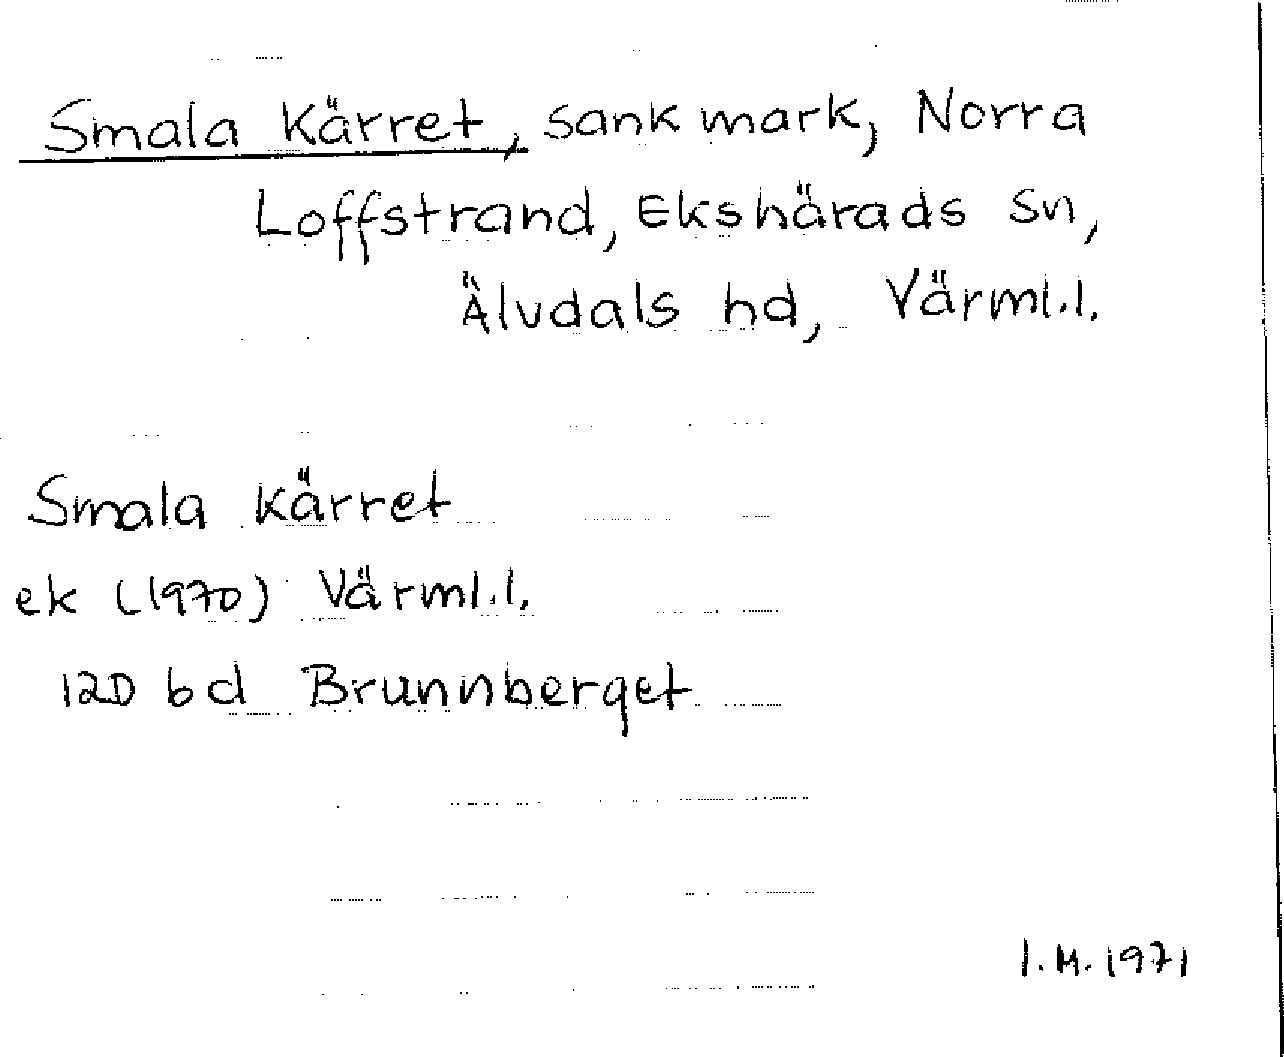 Smala Kärret, sank mark, Norra
Loffstrand, Ekshärads sn,
Älvdals hd, Värml.l.
Smala kärret
ek (1970) Värml.l.
12D bd Brunnberget
I.M. 1971